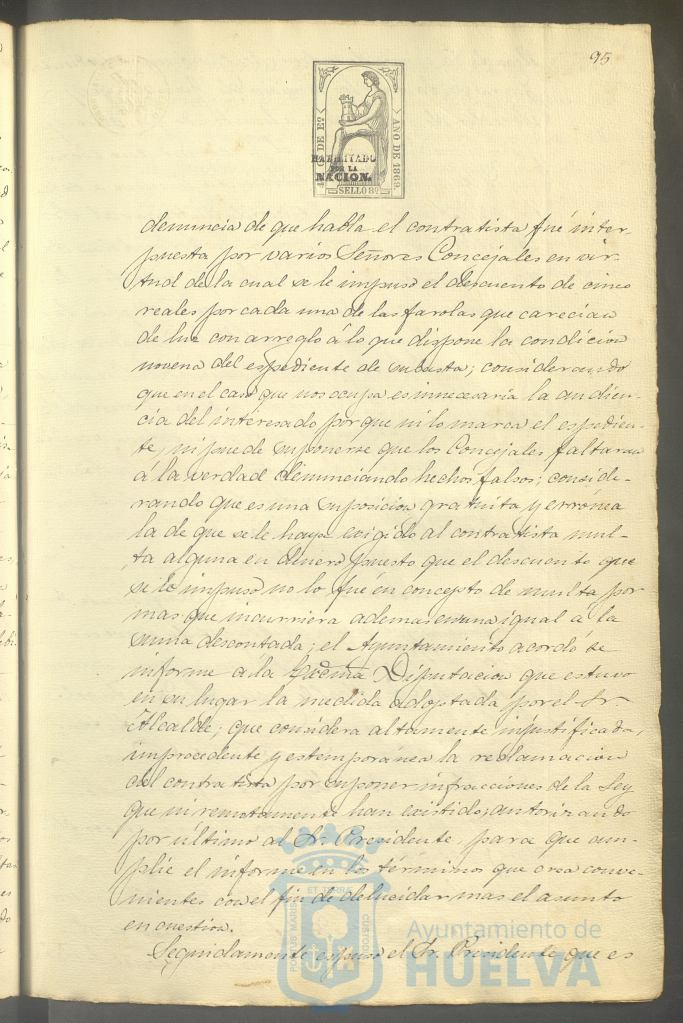 95
4 C. DE Eº
AÑO DE 1869
HABILITADO
POR LA
NACION.
SELLO 8º
denuncia de que habla el contratista fué inter-
puesta por varios Señores Concejales en vir-
tud de la cual se le impuso el descuento de cinco
reales por cada una de las farolas que carecian
de luz con arreglo á lo que dispone la condicion
novena del espediente de subasta; considerando
que en el caso que nos ocupa es innecesaria la audien-
cia del interesado por que ni lo marca el espedien-
te, ni puede suponerse que los Concejales faltaran
á la verdad denunciando hechos falsos; conside-
rando que es una suposicion gratuita y errónea
la de que se le haya exigido al contratista mul-
ta alguna en dinero puesto que el descuento que
se le impuso no lo fué en concepto de multa por
mas que incurriera ademas en una igual á la
suma descontada; el Ayuntamiento acordó se
informe a la Diputacion que estuvo
en su lugar la medida adoptada por el Sr.
Alcalde; que considera altamente injustificada,
improcedente y estemporánea la reclamacion
del contratista por suponer infracciones de la Ley
que ni remotamente han existido; autorizando
por último al Sr. Presidente, para que am-
plie el informe en los términos que crea conve-
nientes con el fin de delucidar mas el asunto
en cuestion.
Seguidamente espuso el Sr. Presidente que es
PORTUS MARIS
ET TERRÆ
CUSTODIA
Ayuntamiento de
HUELVA